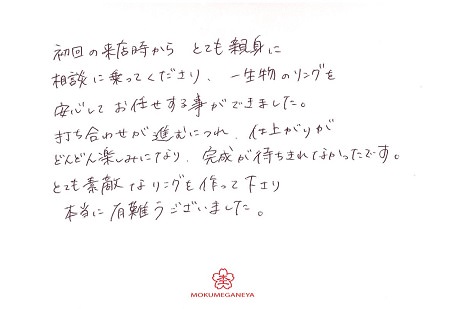 初回の来店時から とても親身に
相談に乗ってくださり、一生物のリングを
安心してお任せする事ができました。
打ち合わせが進むにつれ、仕上がりが
どんどん楽しみになり、完成が待ちきれなかったです。
とても素敵なリングを作って下さり
本当に有難うございました。
MOKUMEGANEYA